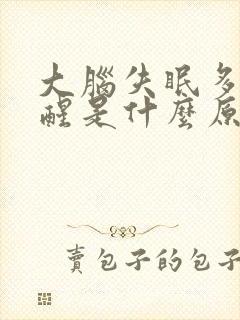 大腦失眠多
醒是什麼原
賣包子的包子